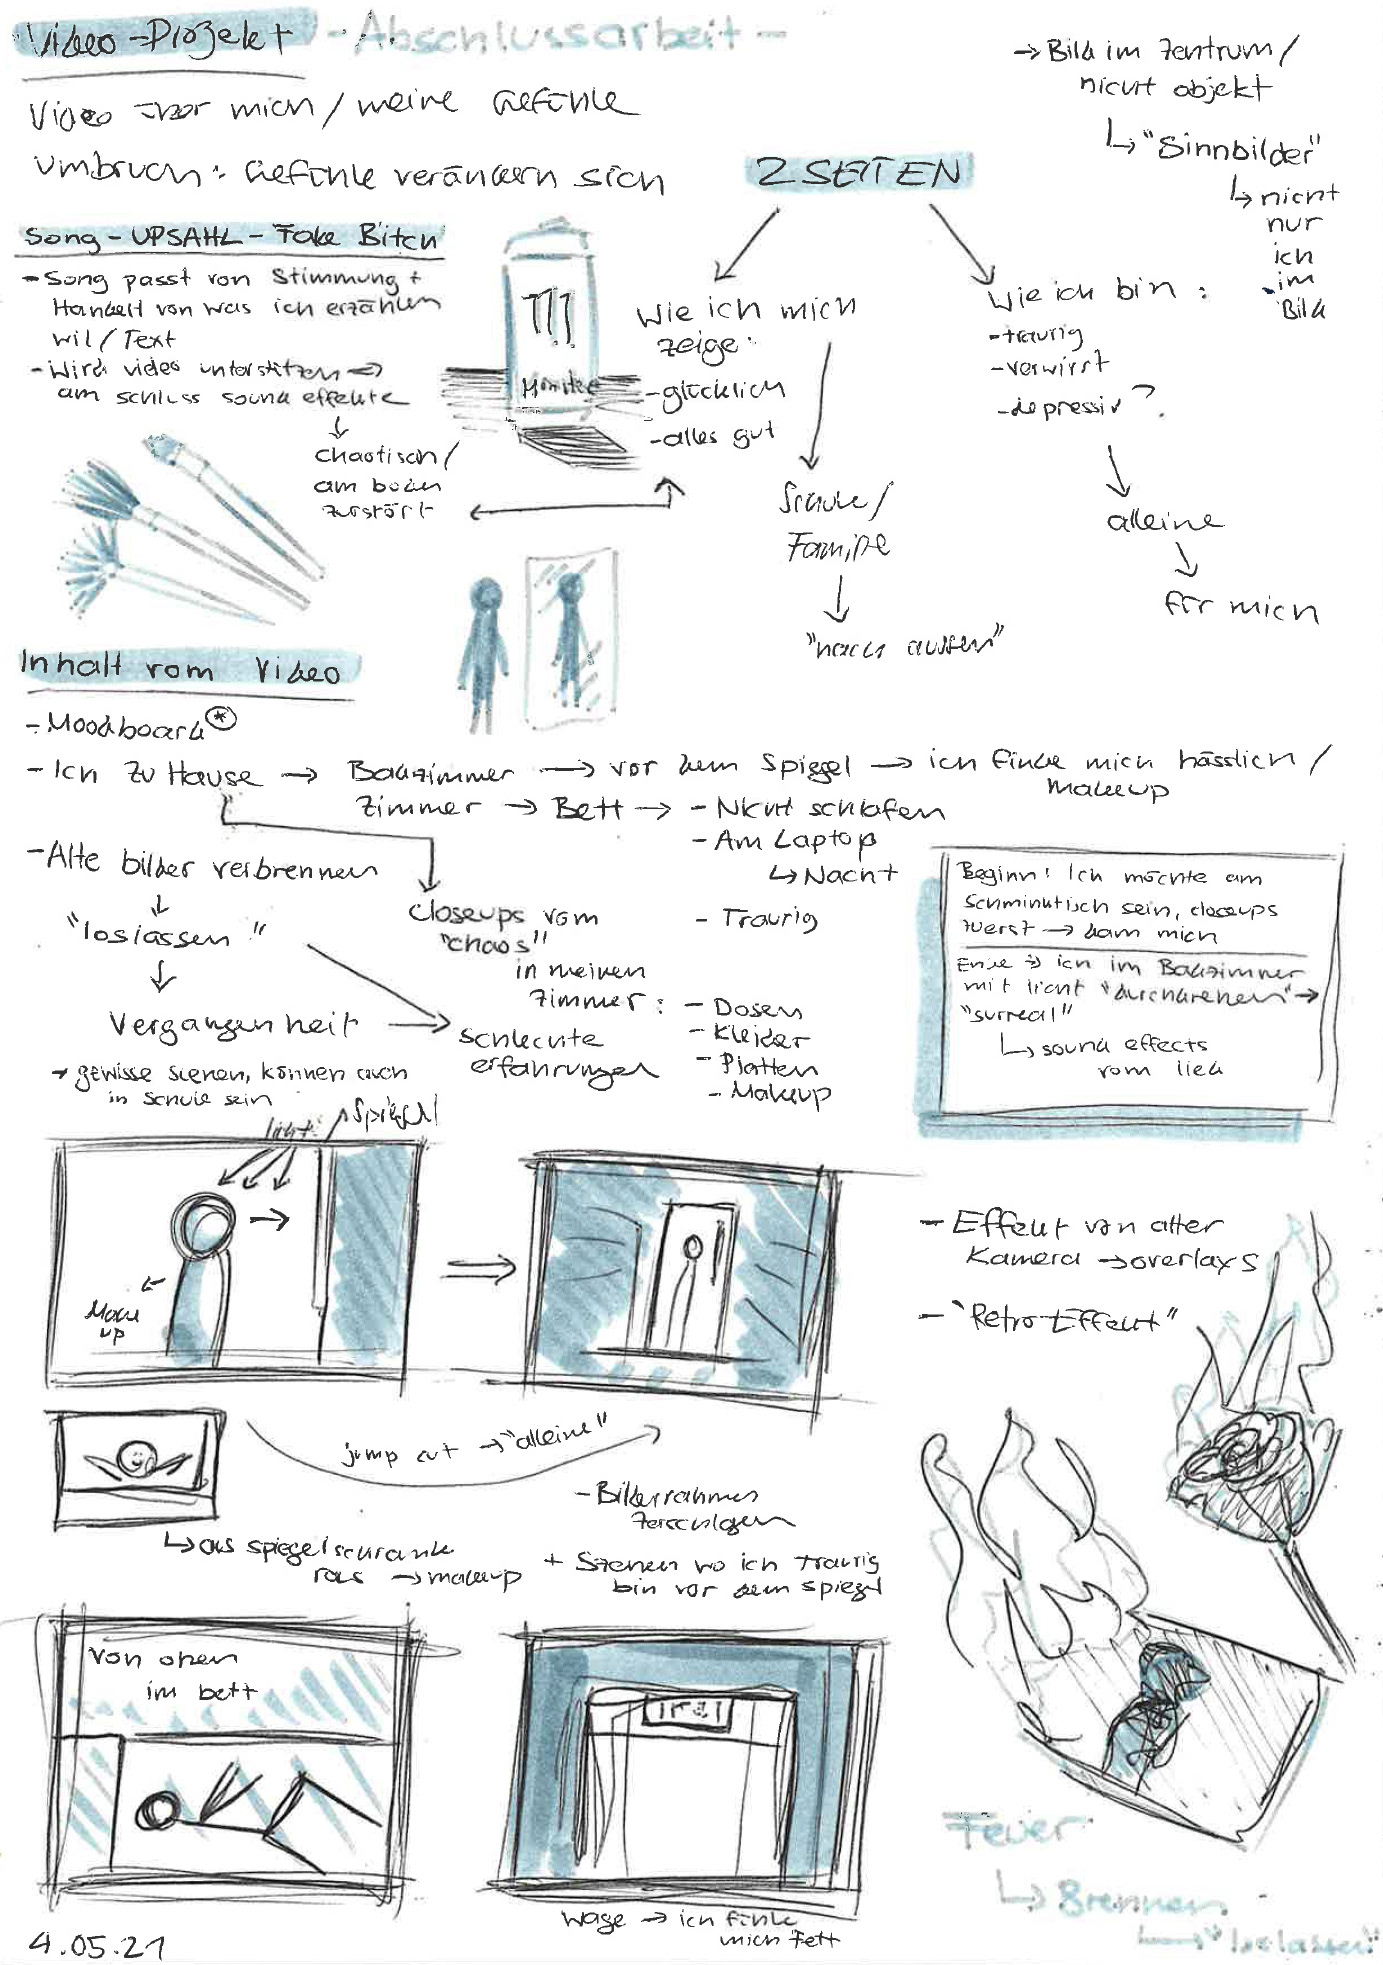 Video-Projekt - Abschlussarbeit -
Video über mich / meine Gefühle
Umbruch: Gefühle verändern sich
→ Bild im Zentrum /
nicht objekt
↳ "Sinnbilder"
↳ nicht
nur
ich
im
Bild
2 SEITEN
Song - UPSAHL - Fake Bitch
- Song passt von Stimmung +
Handelt von was ich erzählen
wil / Text
- Wird video unterstützen →
am schluss sound effekte
↓
chaotisch /
am boden
zerstört
Monster
Wie ich mich
zeige:
- glücklich
- alles gut
Schule /
Familie
↓
"nach aussen"
Wie ich bin:
- traurig
- verwirrt
- depressiv?
alleine
für mich
Inhalt vom Video
- Moodboard *
- Ich zu Hause → Badezimmer → vor dem Spiegel → ich finde mich hässlich /
Makeup
Zimmer → Bett → - Nicht schlafen
- Am Laptop
↳ Nacht
- Traurig
- Alte bilder verbrennen
↓
"loslassen"
↓
Vergangenheit → schlechte
erfahrungen
closeups vom
"chaos"
in meinen
zimmer: - Dosen
- Kleider
- Platten
- Makeup
→ gewisse scenen, können auch
in schule sein
Beginn: Ich möchte am
Schminktisch sein, closeups
zuerst → dann mich
Ende → ich im Badezimmer
mit licht "durchdrehen" →
"surreal"
↳ sound effects
vom lied
licht
Spiegel
Make
up
- Effekt von alter
Kamera → overlays
- "Retro Effekt"
jump cut → "alleine"
↳ aus spiegelschrank
raus → makeup
- Bilderrahmen
zerschlagen
+ Szenen wo ich traurig
bin vor dem spiegel
von oben
im bett
Wage → ich fühle
mich Fett
Feuer
↳ Brennen
↳ "loslassen"
4.05.21